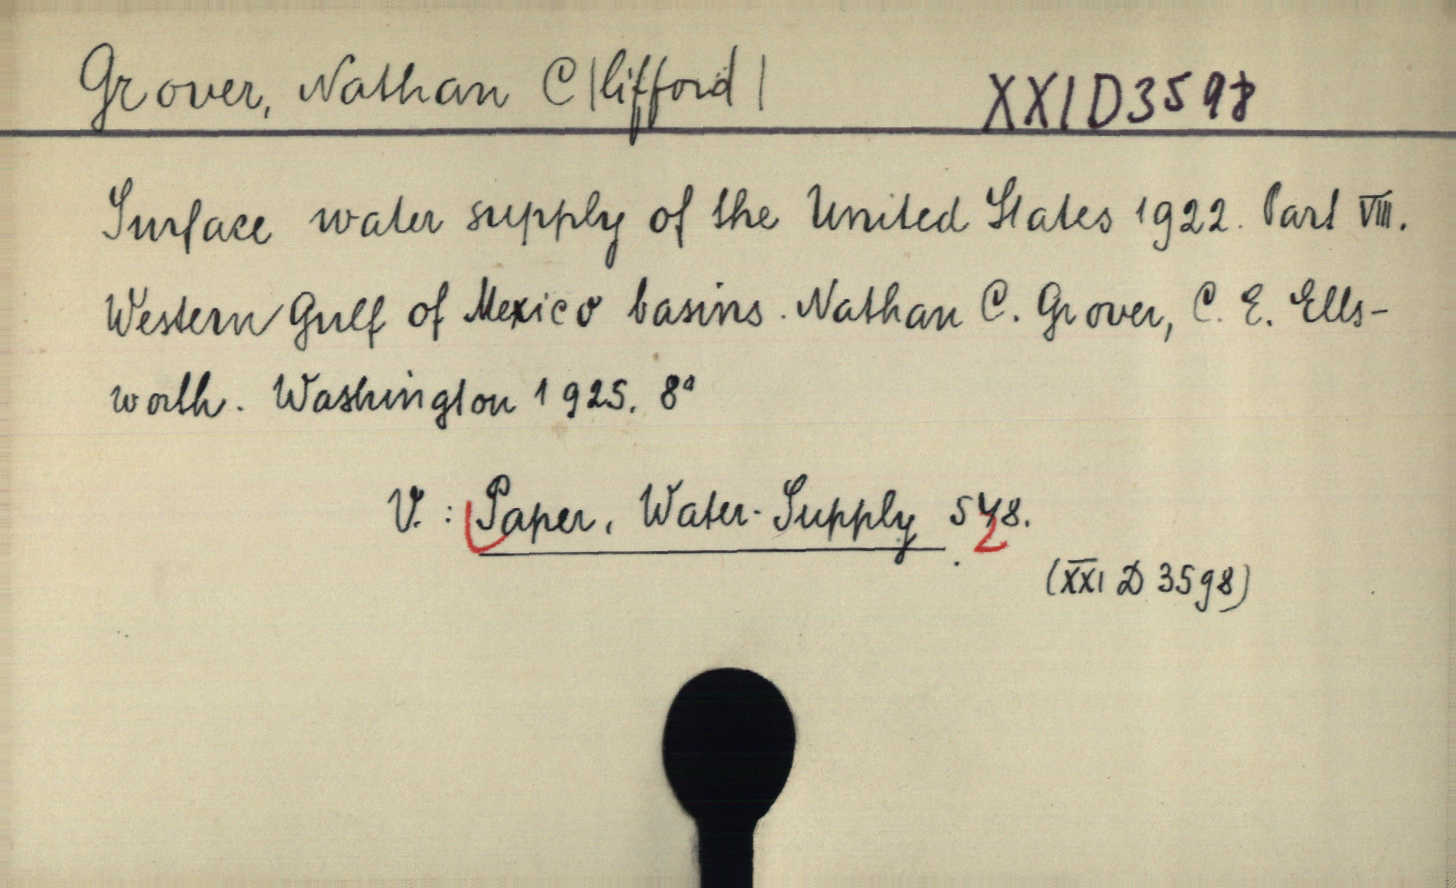 Grover, Nathan C|lifford| XXI D 3598
Surface water supply of the United States 1922. Part VIII.
Western Gulf of Mexico basins. Nathan C. Grover, C. E. Ells-
worth. Washington 1925. 8°
V.: Paper, Water-Supply 548.
2
(XXI D 3598)